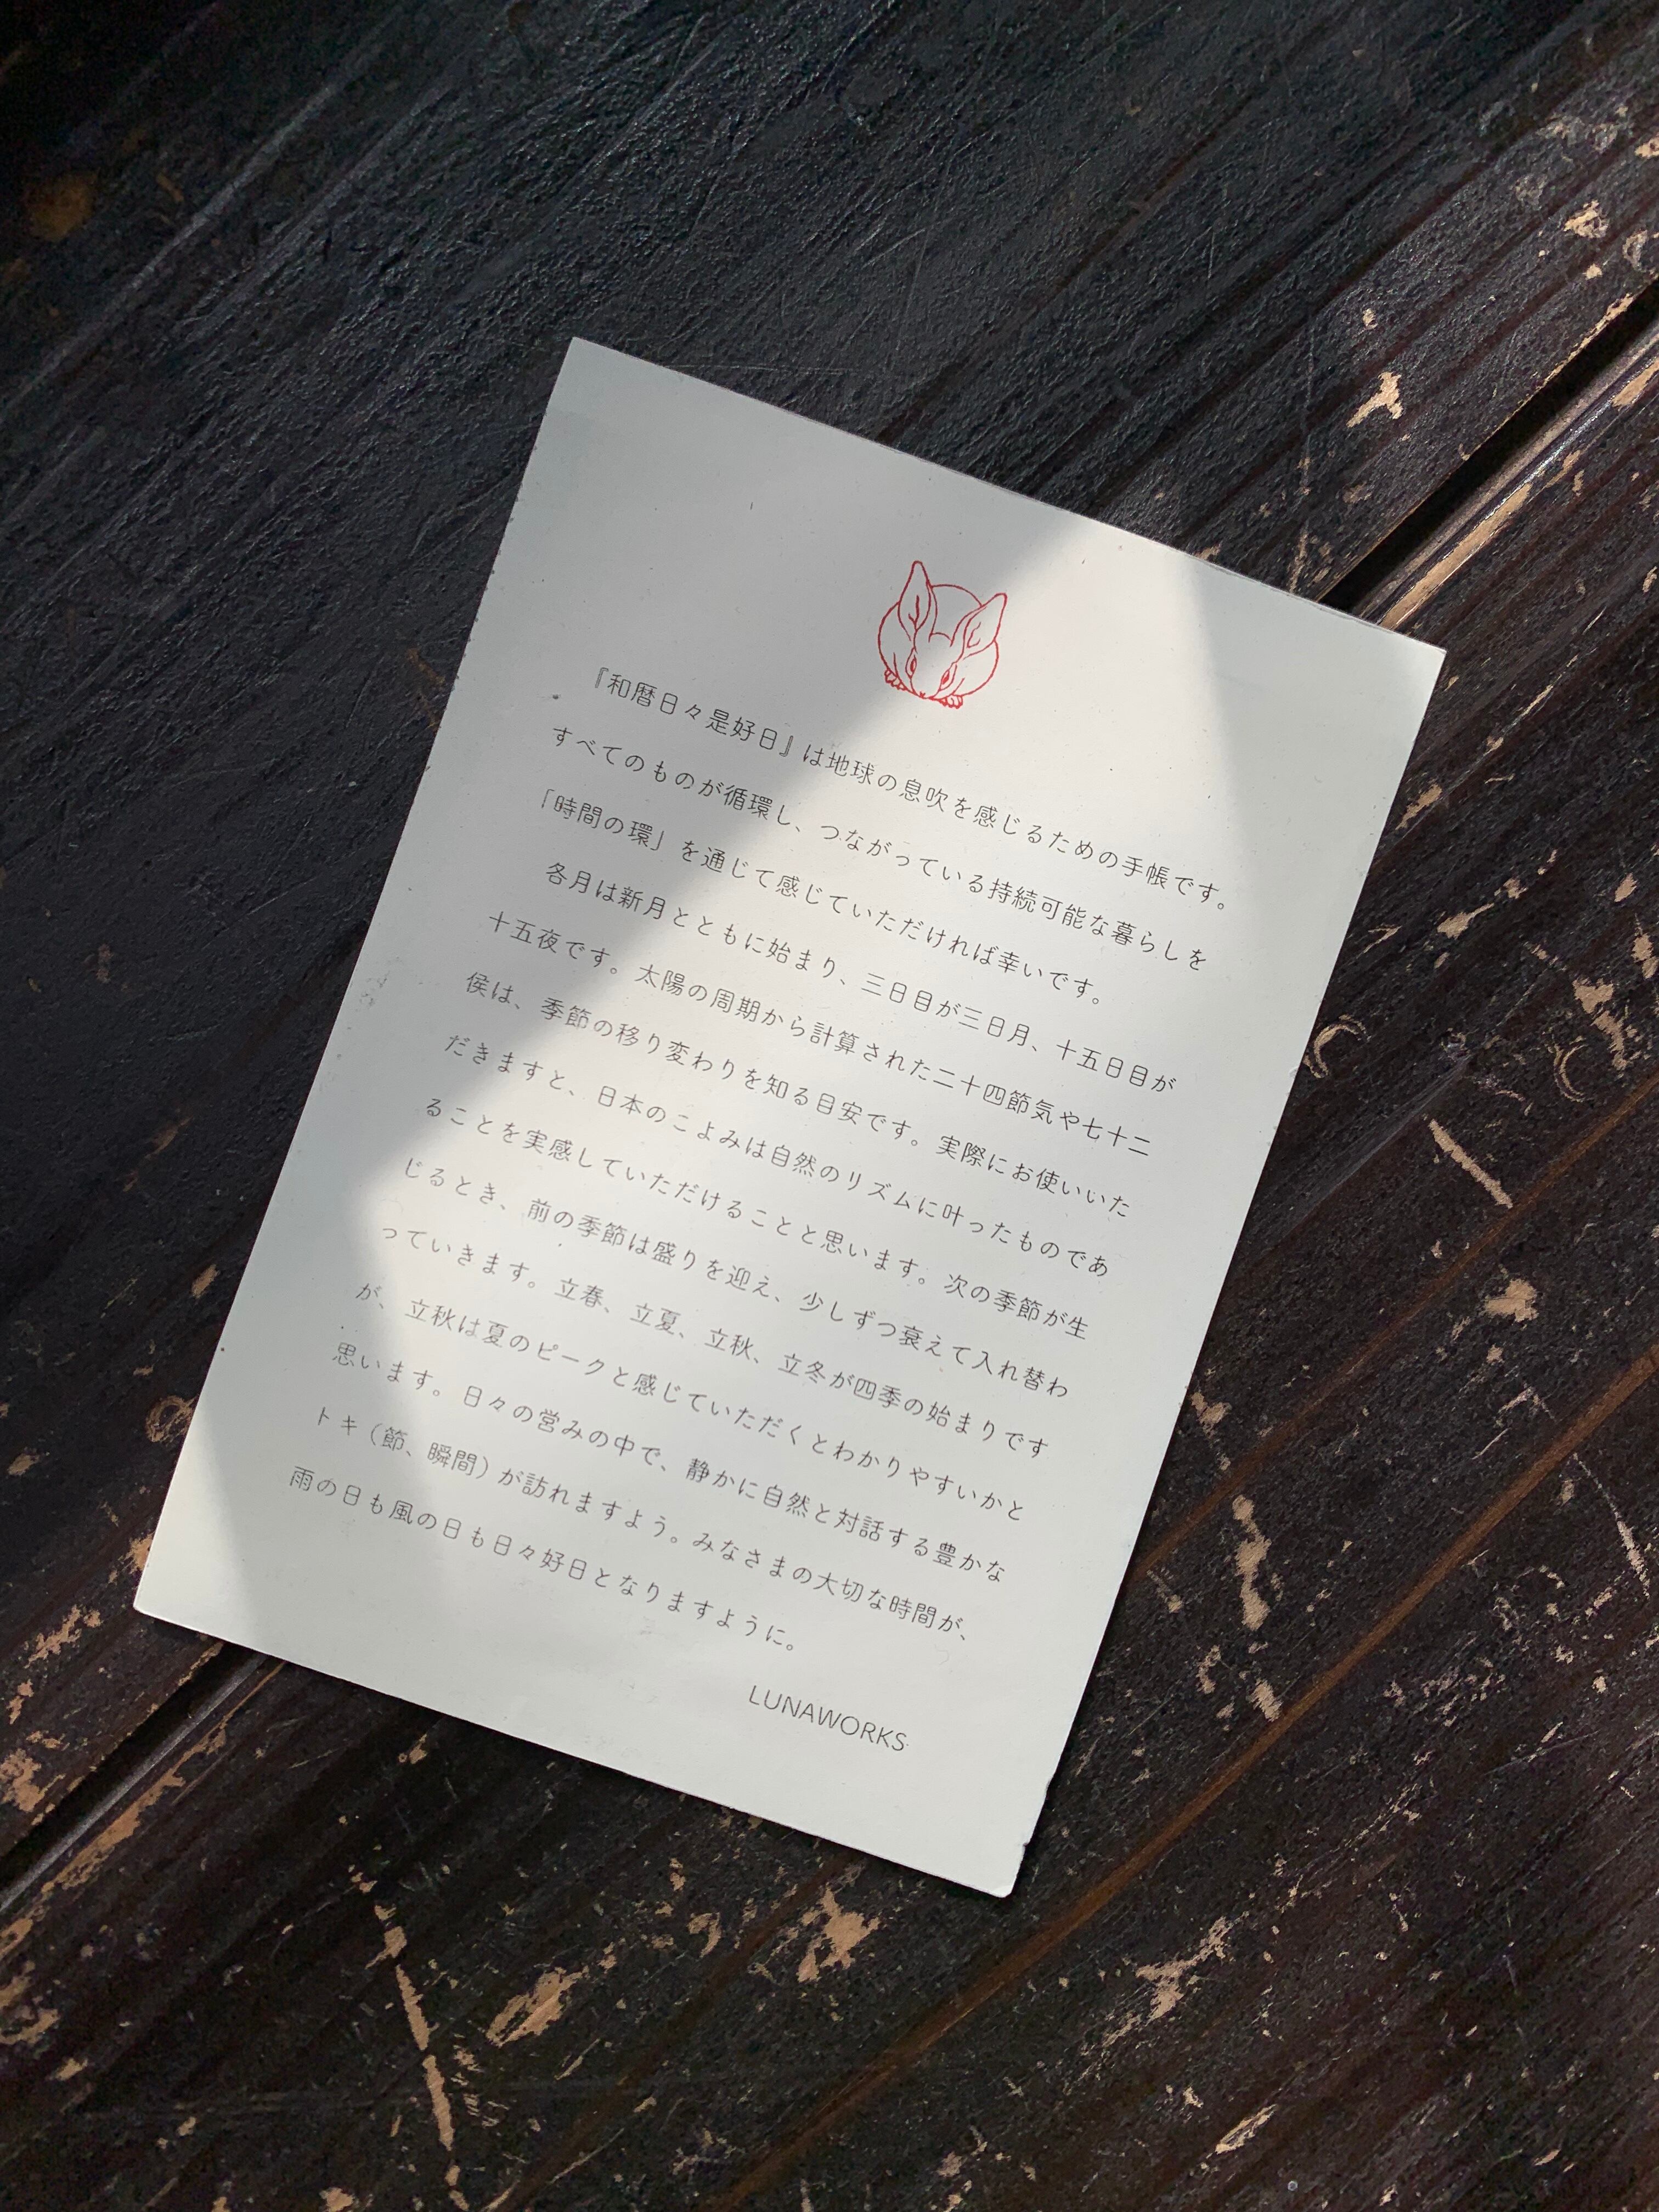 『和暦日々是好日』は地球の息吹を感じるための手帳です。
すべてのものが循環し、つながっている持続可能な暮らしを
「時間の環」を通じて感じていただければ幸いです。
各月は新月とともに始まり、三日目が三日月、十五日目が
十五夜です。太陽の周期から計算された二十四節気や七十二
侯は、季節の移り変わりを知る目安です。実際にお使いいた
だきますと、日本のこよみは自然のリズムに叶ったものであ
ることを実感していただけることと思います。次の季節が生
じるとき、前の季節は盛りを迎え、少しずつ衰えて入れ替わ
っていきます。立春、立夏、立秋、立冬が四季の始まりです
が、立秋は夏のピークと感じていただくとわかりやすいかと
思います。日々の営みの中で、静かに自然と対話する豊かな
トキ（節、瞬間）が訪れますよう。みなさまの大切な時間が、
雨の日も風の日も日々好日となりますように。
LUNAWORKS